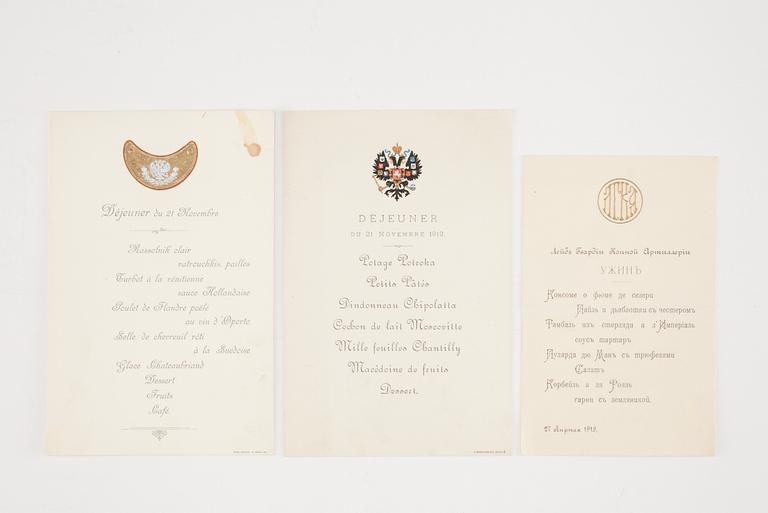 Déjeuner du 21 Novembre
Rassolnik clair
vatrouchkis, pailles
Turbot à la vénitienne
sauce Hollandaise
Poulet de Flandre poêlé
au vin d'Oporto
Selle de chevreuil rôti
à la Suédoise
Glace Chateaubriand
Dessert
Fruits
Café
DÉJEUNER
DU 21 NOVEMBRE 1912.
Potage Potocka
Petits Pâtés
Dindonneau Chipolatta
Cochon de lait Moscovitte
Mille feuilles Chantilly
Macédoine de fruits
Dessert.
Лейбъ Гвардіи Конной Артиллеріи
УЖИНЪ
Консоме о фюме де селери
Пайль и дьяблотки съ честеромъ
Тамбаль изъ стерляди а л'Имперіаль
соусъ тартаръ
Пулярда дю Манъ съ трюфелями
Салатъ
Корбейль а ля Рояль
гарни съ земляникой.
27 Апрѣля 1912.